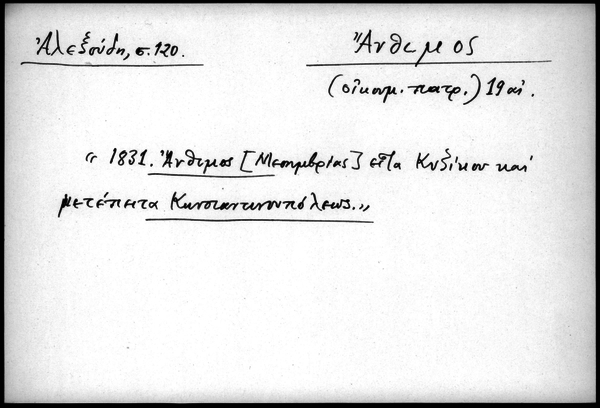 Ἀλεξούδη, σ. 120.
Ἄνθιμος
(οἰκουμ. πατρ.) 19 αἰ.
« 1831. Ἄνθιμος [Μεσημβρίας] εἶτα Κυζίκου καὶ
μετέπειτα Κωνσταντινουπόλεως.»